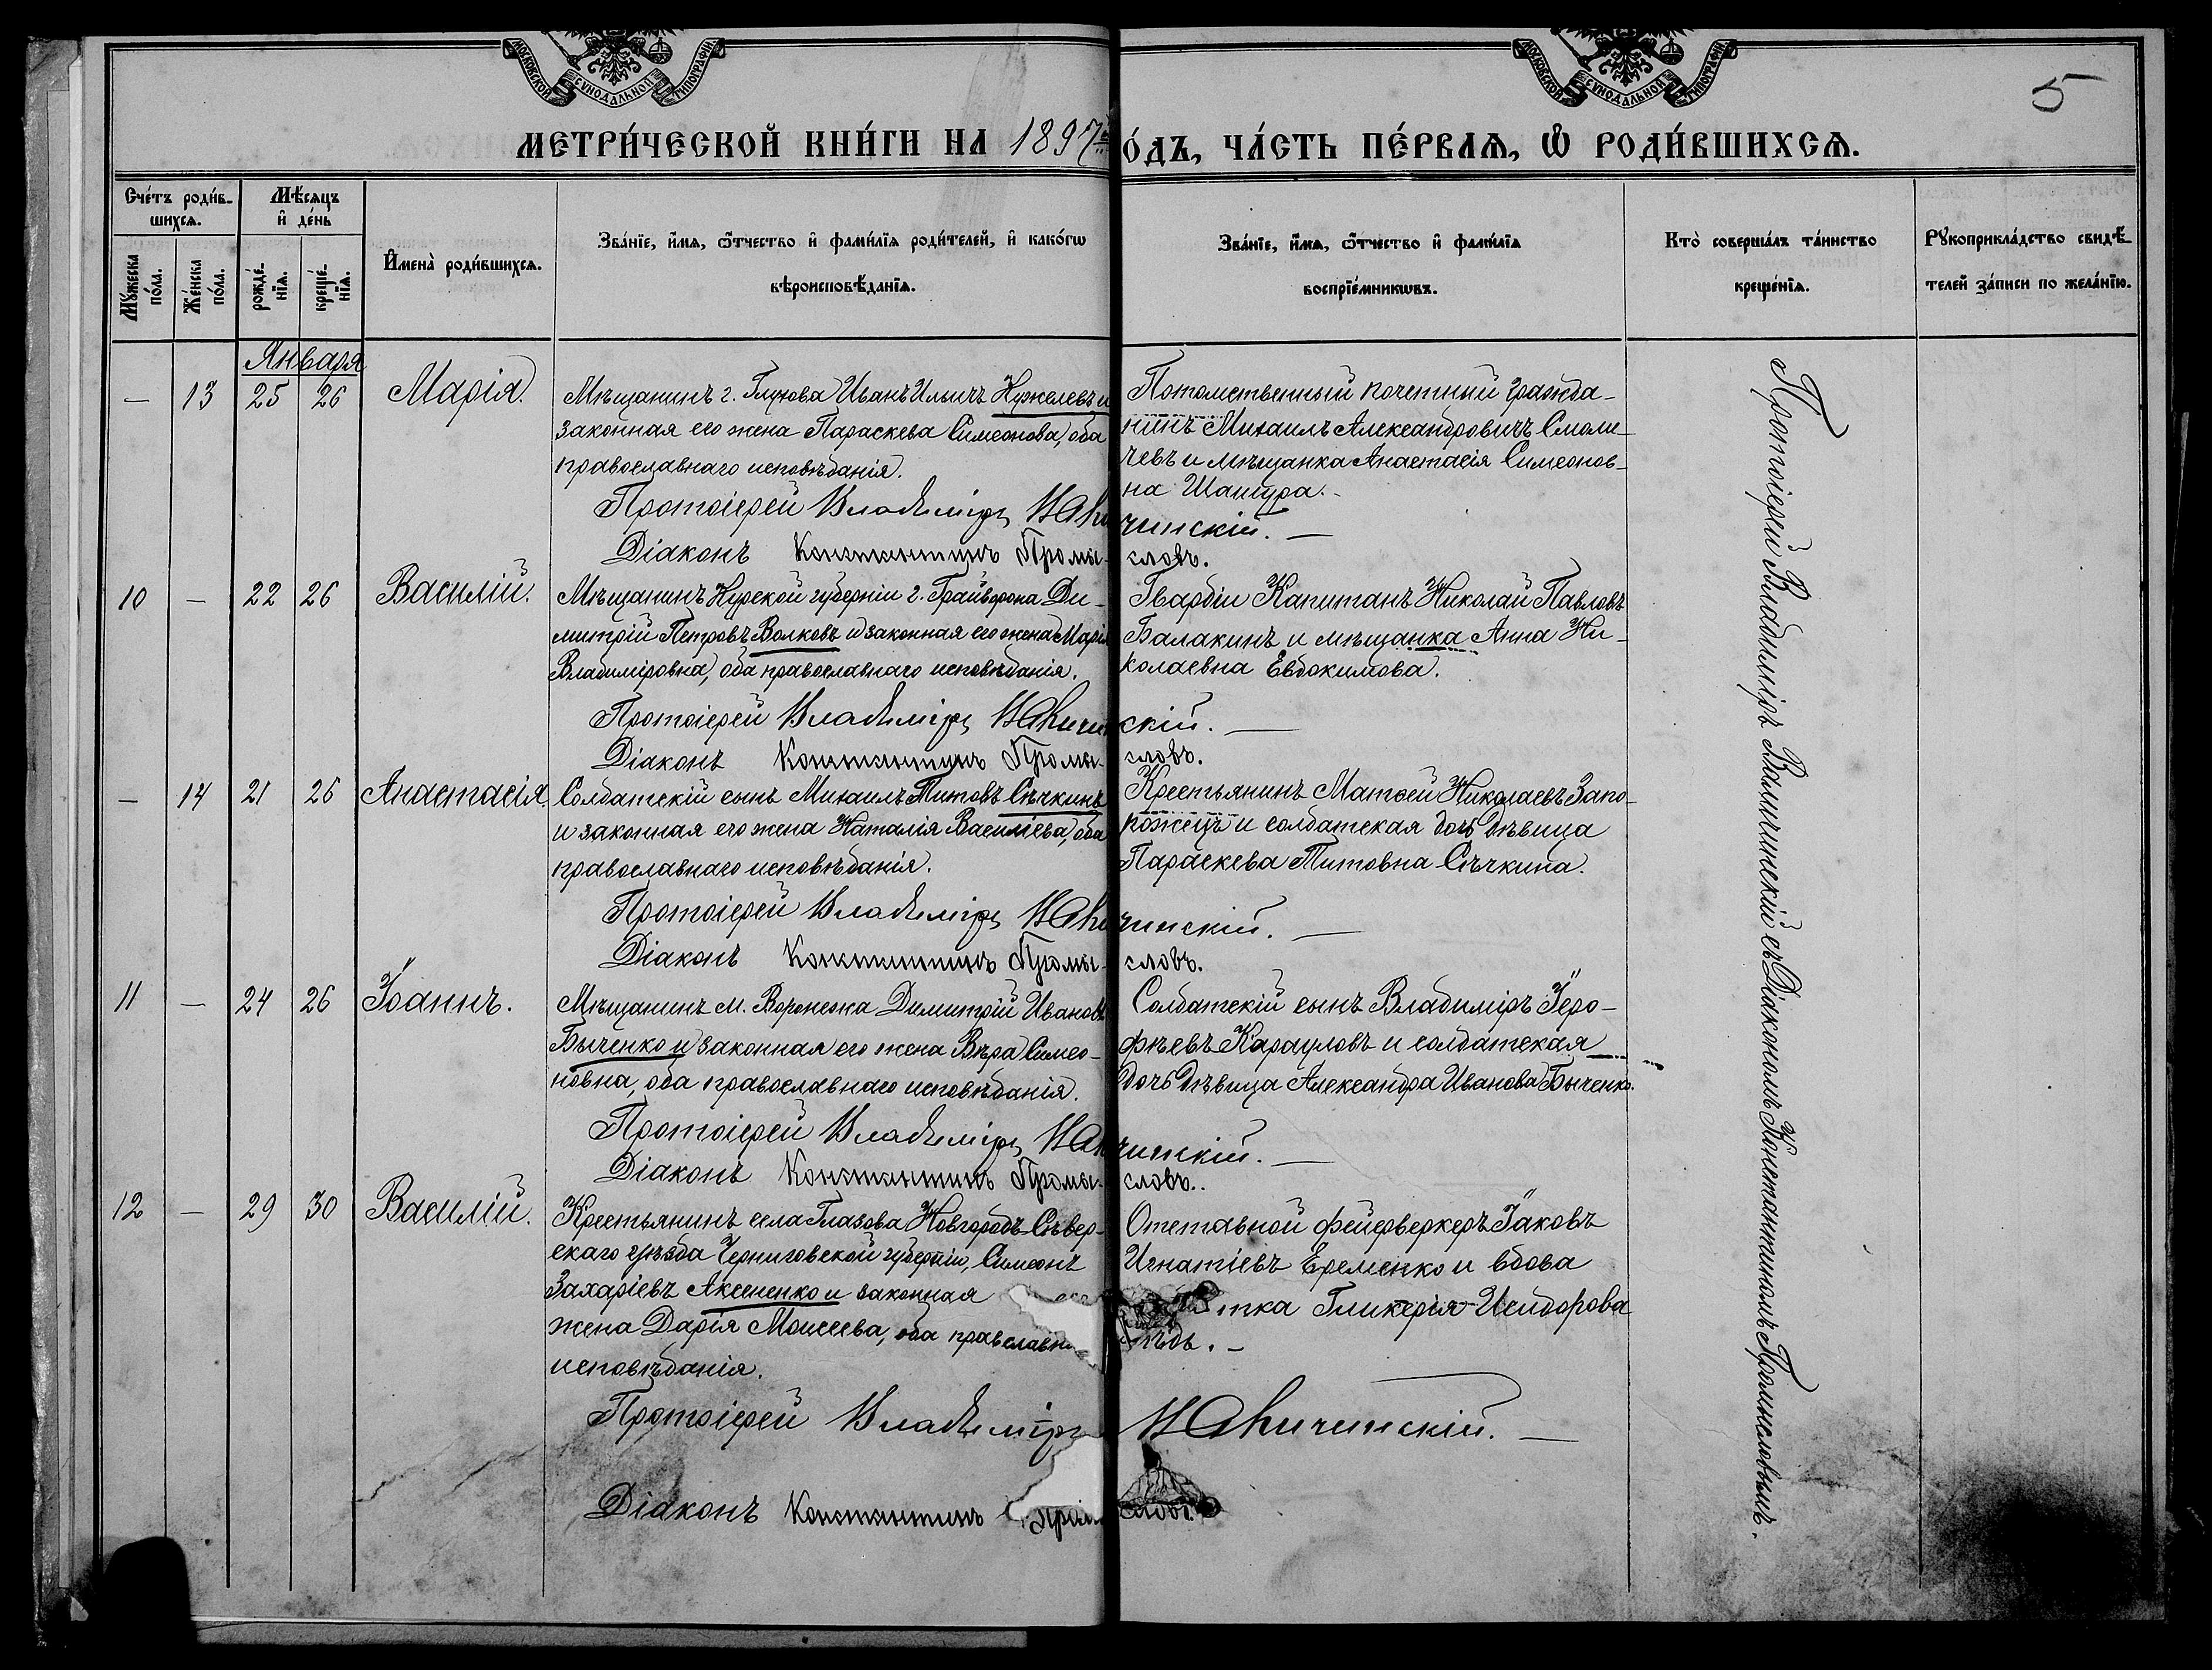 МОСКОВСКОЙ СѴНОДАЛЬНОЙ ТИПОГРАФІИ
МОСКОВСКОЙ СѴНОДАЛЬНОЙ ТИПОГРАФІИ
5
МЕТРИ́ЧЕСКОЙ КНИ́ГИ НА 1897 О́ДЪ, ЧА́СТЬ ПЕ́РВАѦ, Ѡ҆ РОДИ́ВШИХСѦ.
Сче́тъ роди́в-
шихсѧ.
Мѣ́сѧцъ
и҆ де́нь
Мꙋ́жеска
по́ла.
Же́нска
по́ла.
рожде́-
нїѧ.
креще́-
нїѧ.
И҆мена̀ роди́вшихсѧ.
Зва́нїе, и҆́мѧ, ѻ҆́тчество и҆ фами́лїѧ роди́телей, и҆ како́гѡ
вѣроисповѣ́данїѧ.
Зва́нїе, и҆́мѧ, ѻ҆́тчество и҆ фами́лїѧ
воспрїе́мникѡвъ.
Кто̀ соверша́лъ та́инство
креще́нїѧ.
Рꙋкоприкла́дство свидѣ́-
телей за́писи по жела́нїю.
Января
— 13 25 26 Марія.
Мѣщанинъ г. Глухова Иванъ Ильичъ Нужелевъ и
законная его жена Параскева Симеонова, оба
православнаго исповѣданія.
Потомственный почетный гражда-
нинъ Михаилъ Александровичъ Смоли-
чевъ и мѣщанка Анастасія Симеонов-
на Шашура.
Протоіерей Владиміръ Величинскій. —
Діаконъ Константинъ Промы-словъ.
10 — 22 26 Василій.
Мѣщанинъ Курской губерніи г. Грайворона Ди-
митрій Петровъ Волковъ и законная его жена Марія
Владиміровна, оба православнаго исповѣданія.
Гвардіи Капитанъ Николай Павловъ
Балакинъ и мѣщанка Анна Ни-
колаевна Евдокимова.
Протоіерей Владиміръ Величинскій. —
Діаконъ Константинъ Промы-словъ.
— 14 21 26 Анастасія.
Солдатскій сынъ Михаилъ Титовъ Сѣчкинъ
и законная его жена Наталія Василіева, оба
православнаго исповѣданія.
Крестьянинъ Матѳей Николаевъ Запо-
рожецъ и солдатская дочь дѣвица
Параскева Титовна Сѣчкина.
Протоіерей Владиміръ Величинскій. —
Діаконъ Константинъ Промы-словъ.
11 — 24 26 Іоаннъ.
Мѣщанинъ м. Воронежа Димитрій Ивановъ
Быченко и законная его жена Вѣра Симео-
новна, оба православнаго исповѣданія.
Солдатскій сынъ Владиміръ Іеро-
фѣевъ Карауловъ и солдатская
дочь дѣвица Александра Иванова Быченко.
Протоіерей Владиміръ Величинскій. —
Діаконъ Константинъ Промы-словъ.
12 — 29 30 Василій.
Крестьянинъ села Глазова Новгородъ-Сѣвер-
скаго уѣзда Черниговской губерніи, Симеонъ
Захаріевъ Аксененко и законная его
жена Дарія Моисеева, оба православн
исповѣданія.
Отставной фейерверкеръ Іаковъ
Игнатіевъ Еременко и вдова
тка Гликерія Исидорова
Протоіерей Владиміръ Величинскій. —
Діаконъ Константинъ Промысловъ.
Протоіерей Владиміръ Величинскій съ Діакономъ Константиномъ Промысловымъ.